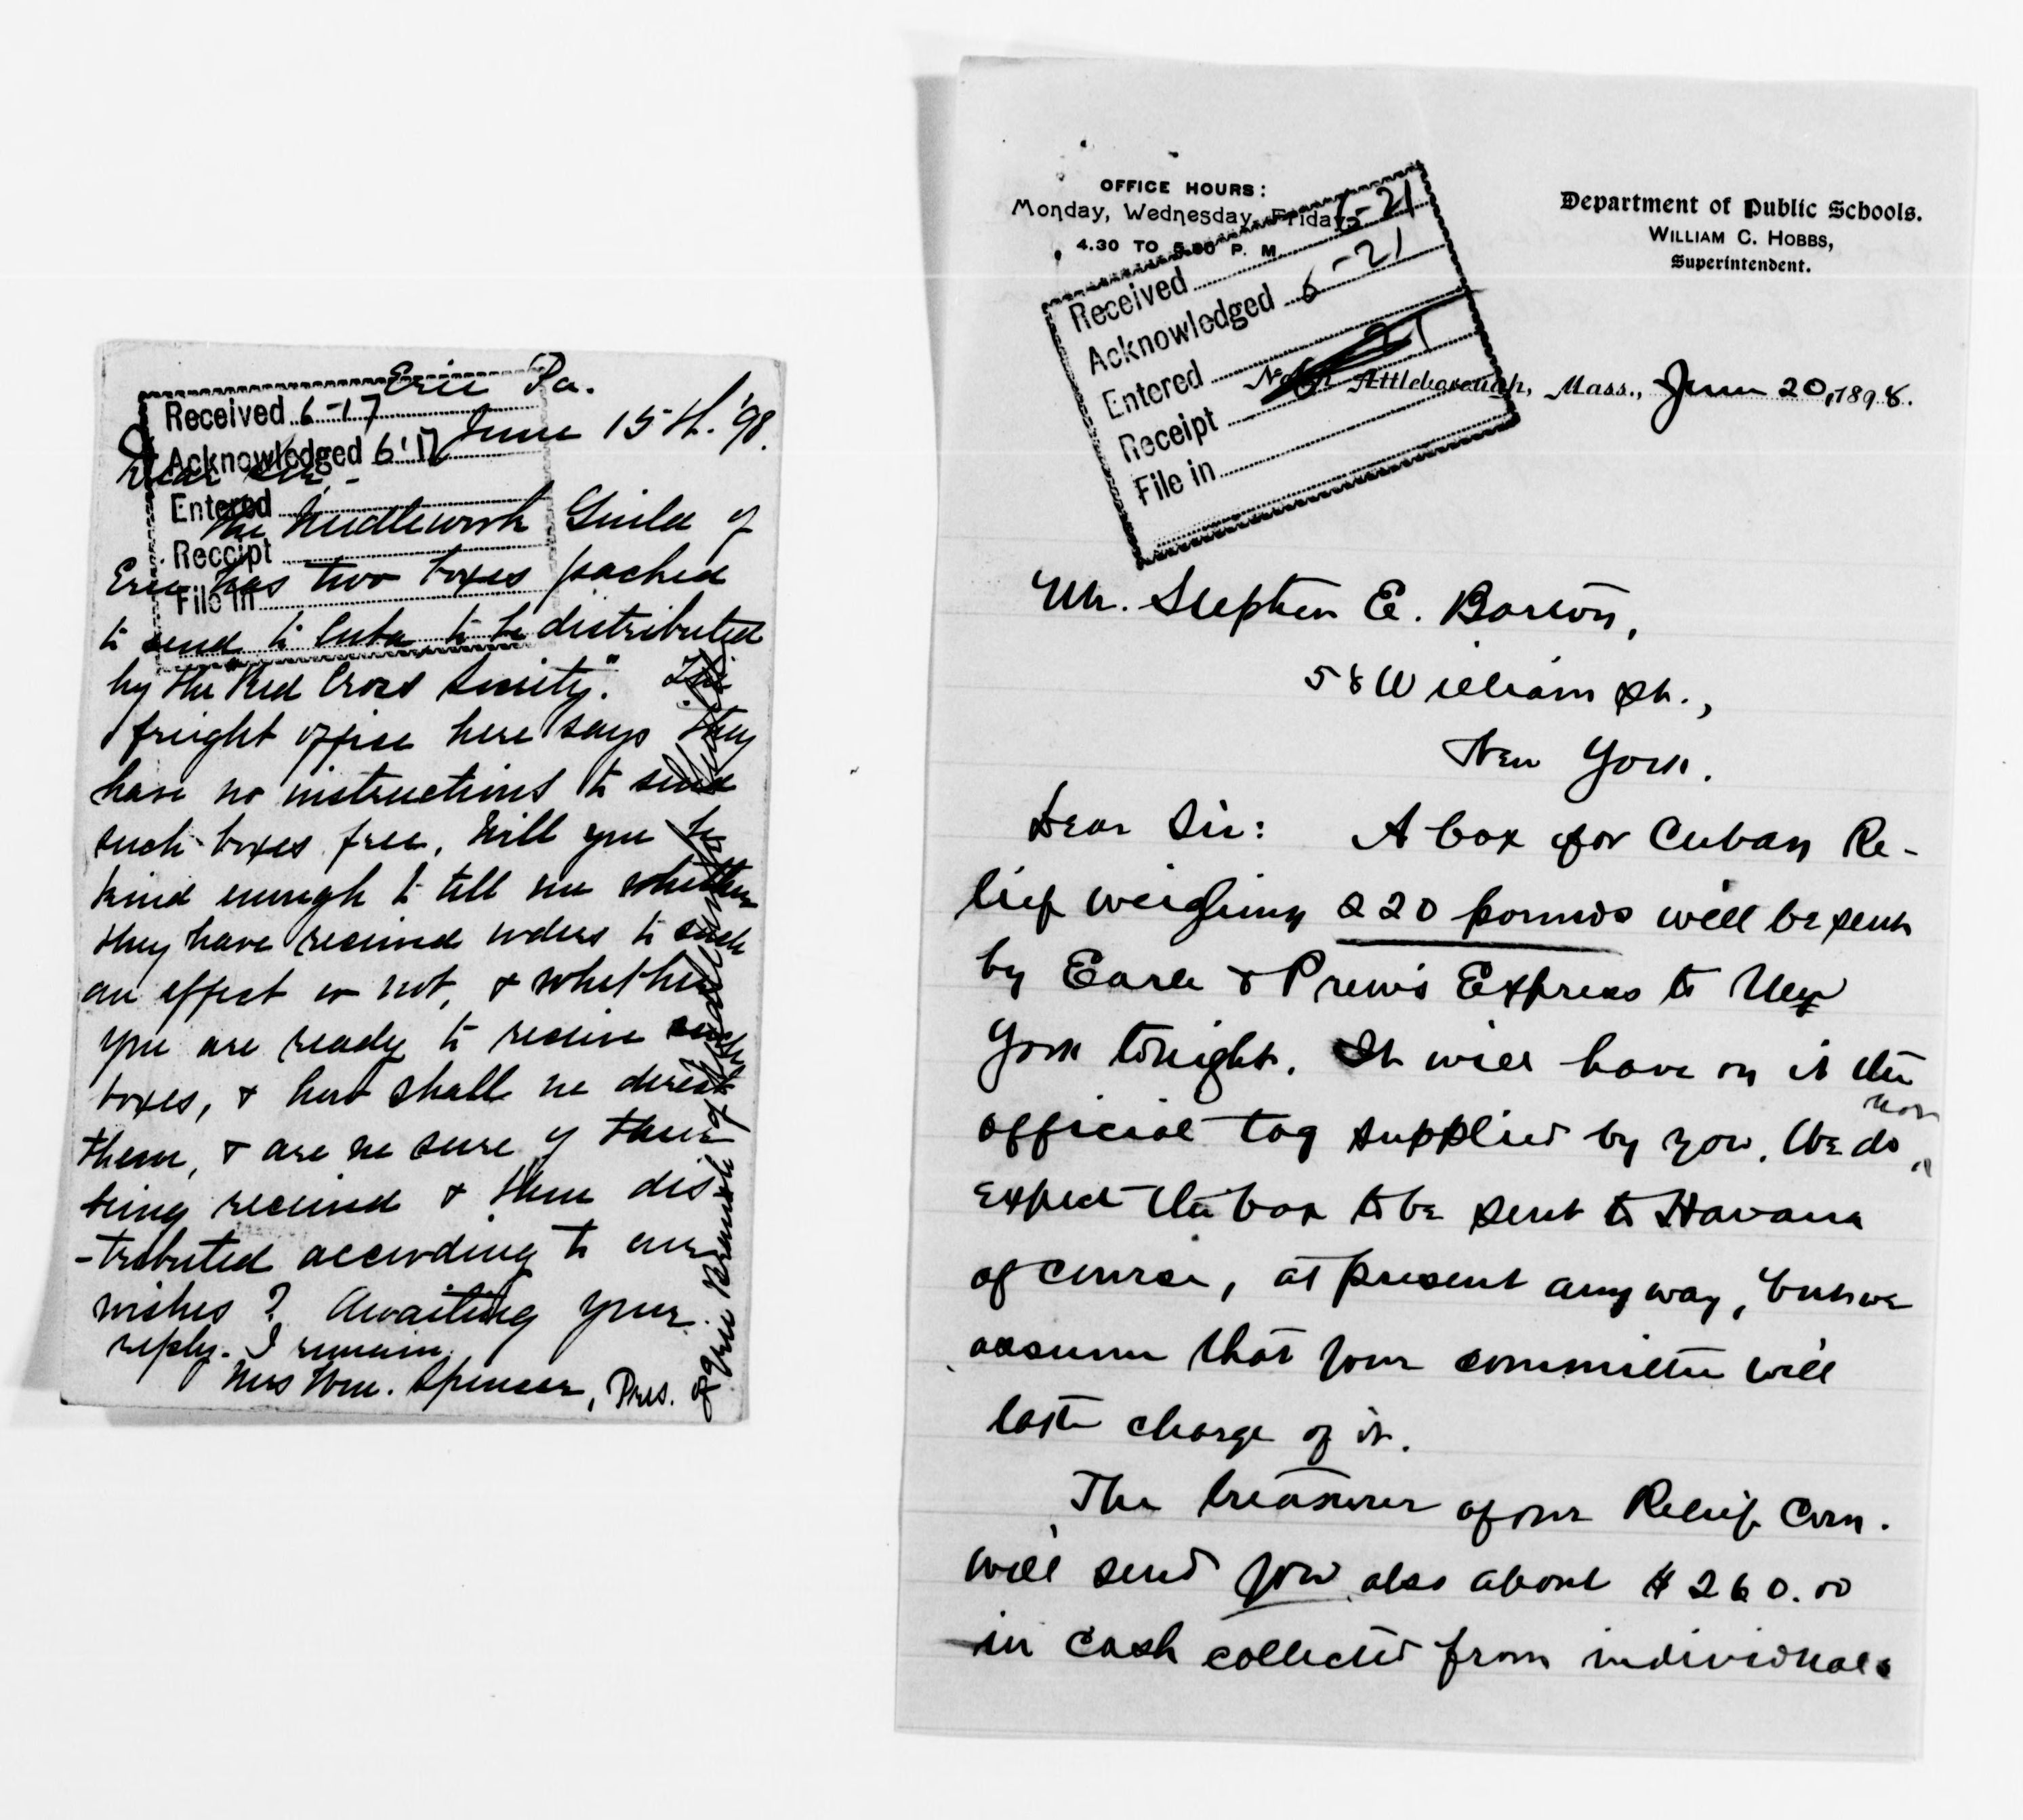 Erie Pa.
June 15th. '98.
Received 6-17
Acknowledged 6-17
Entered
Receipt
File in
Dear Sir, -
The Needlework Guild of
Erie has two boxes packed
to send to Cuba to be distributed
by the "Red Cross Society." The
freight office here says they
have no instructions to send
such boxes free. Will you be
kind enough to tell me whether
they have received orders to such
an effect or not, & whether
you are ready to receive such
boxes, & how shall we direct
them, & are we sure of their
being received & then dis
-tributed according to our
wishes? Awaiting your
reply. I remain,
Mrs Wm. Spencer, Pres.
of Erie Branch of Needlework
OFFICE HOURS:
Monday, Wednesday, Friday
4.30 TO 5.30 P. M.
Department of Public Schools.
WILLIAM C. HOBBS,
Superintendent.
Received 6-21
Acknowledged 6-21
Entered 21
Receipt
File in
North Attleborough, Mass., June 20, 1898.
Mr. Stephen E. Barton,
58 William St.,
New York.
Dear Sir: A box for Cuban Re-
lief weighing 220 pounds will be sent
by Earle & Prew's Express to New
York tonight. It will have on it the
official tag supplied by you. We do not
expect the box to be sent to Havana
of course, at present anyway, but we
assume that your committee will
take charge of it.
The treasurer of our Relief Com.
will send you also about $260.00
in cash collected from individuals